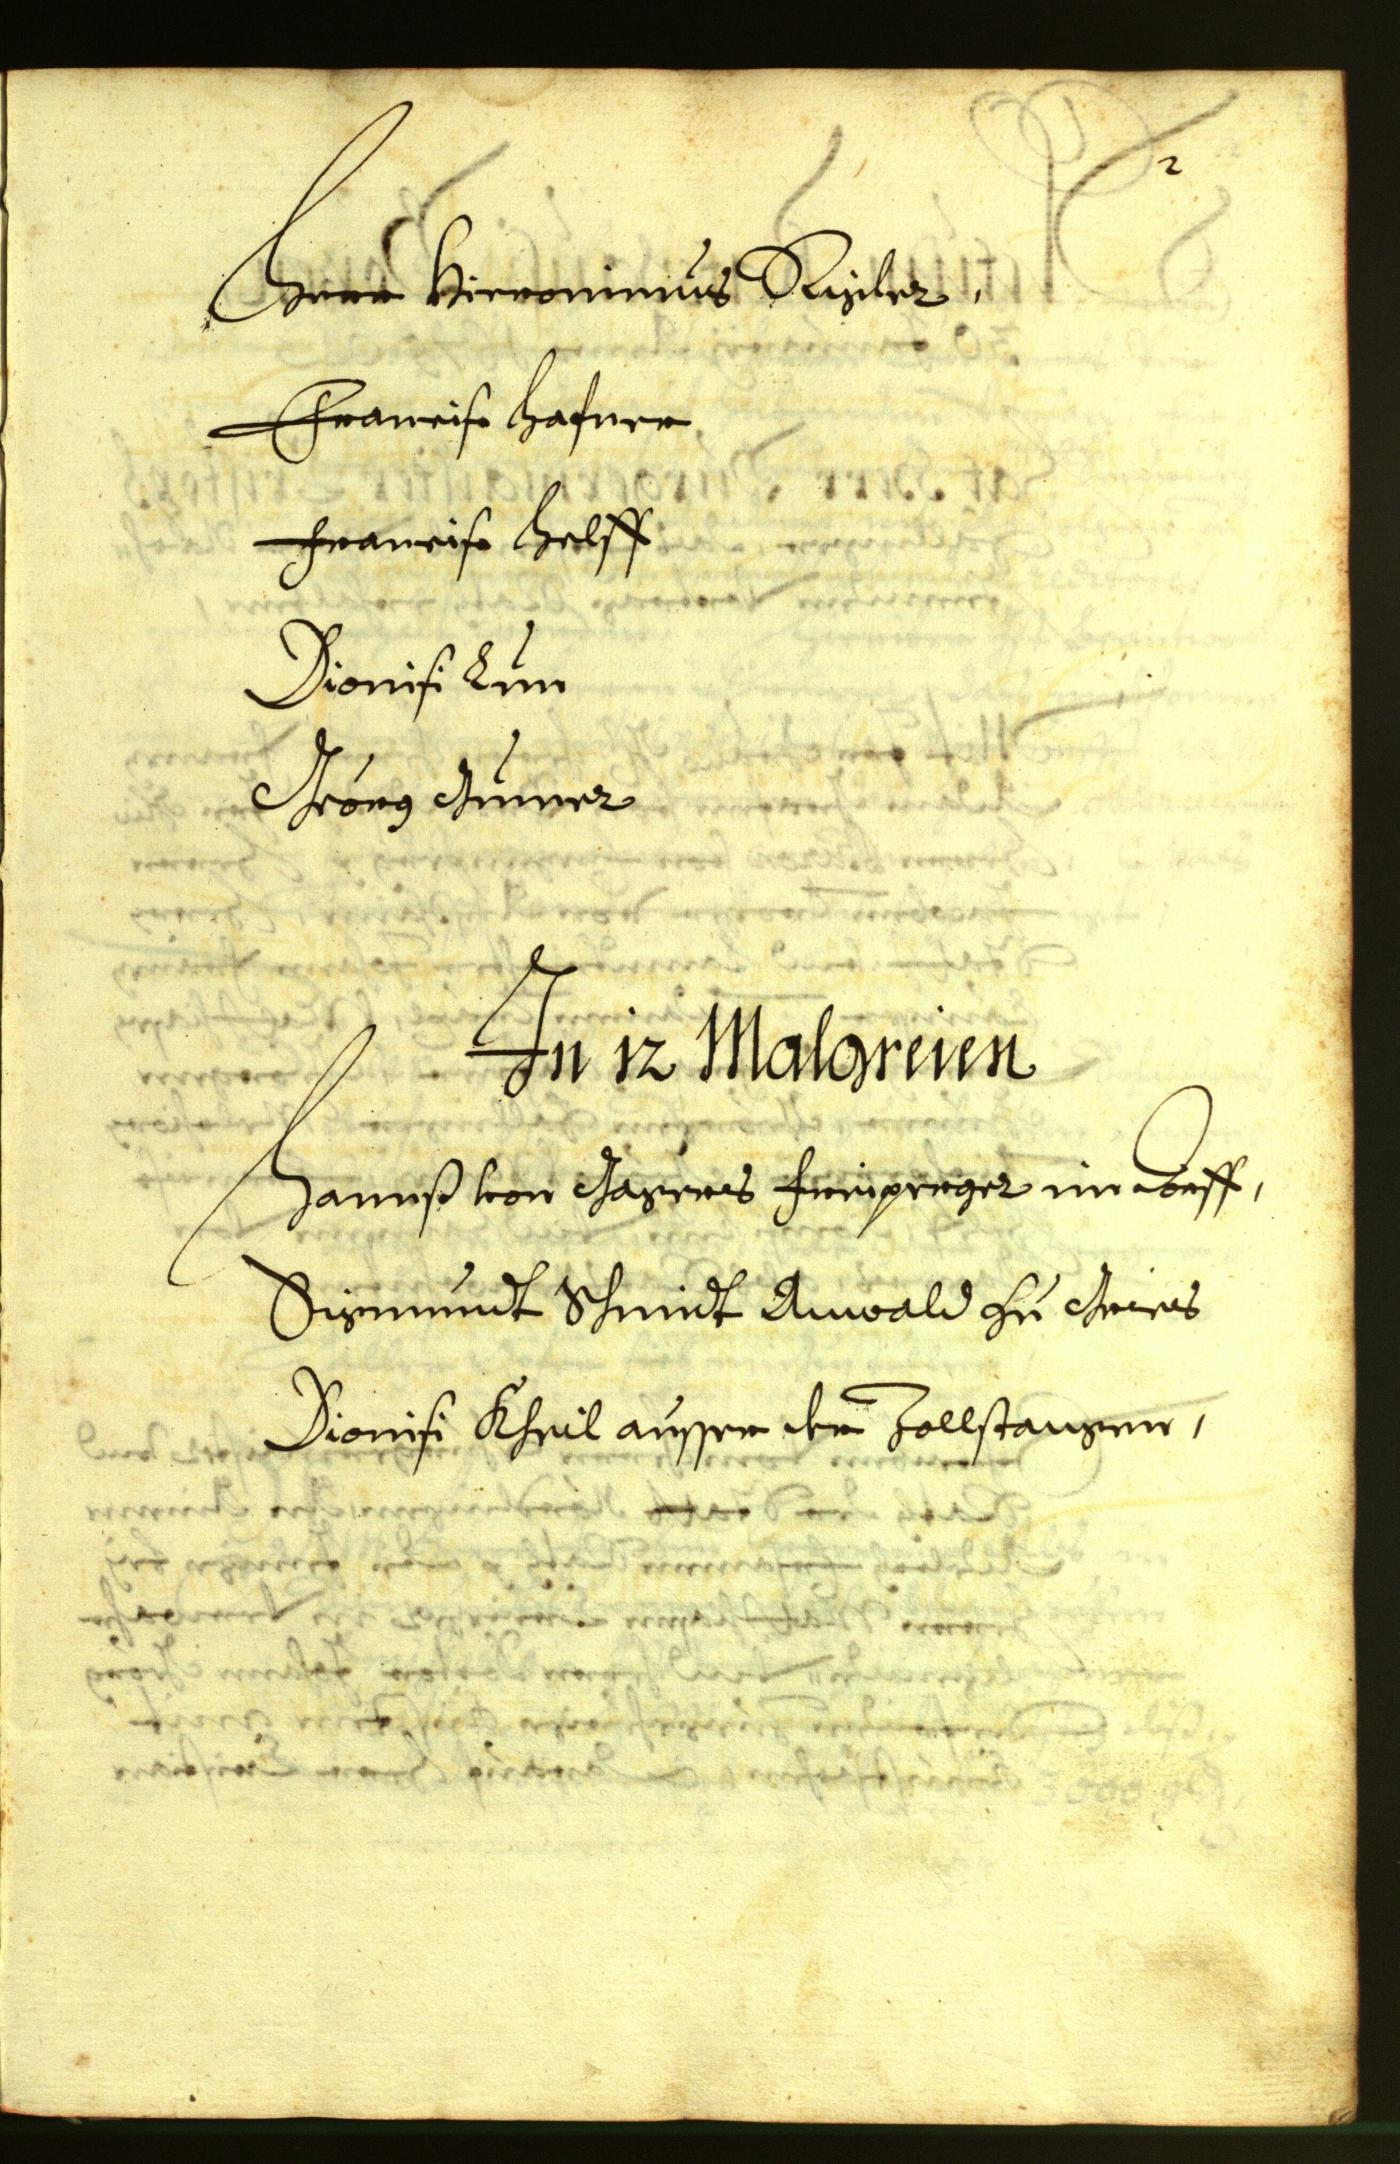 2
Herr Hieronimus Rizler,
Francisc Hafner
Francisc Helff
Dionisi Lun
Geörg Gumer
In 12 Malgreien
Hannß von Gazens freipreger im Dorff,
Sigmundt Schmidt Anwald zu Gries
Dionisi Kheil ausser der Zollstangen,